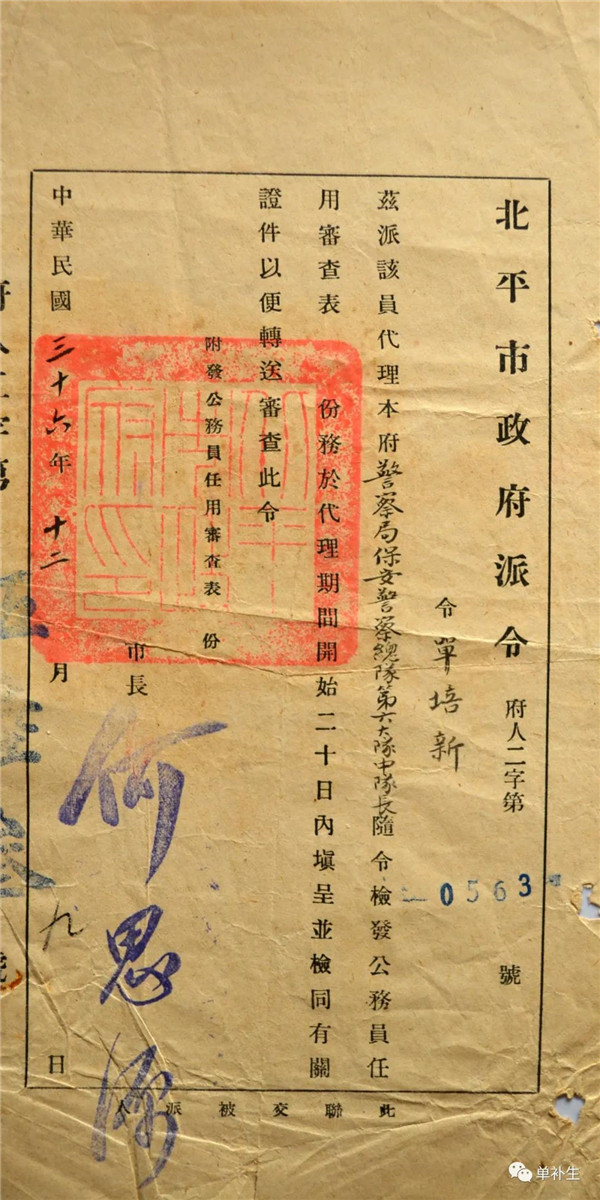 北平市政府派令 府人二字第 0563 號
令 單培新
茲派該員代理本府警察局保安警察總隊第六大隊中隊長隨令檢發公務員任
用審查表 份務於代理期間開始二十日內塡呈並檢同有關
證件以便轉送審查此令
附發公務員任用審查表 份
市長 何思源
中華民國三十六年十二月九日
此聯交被派人
单补生